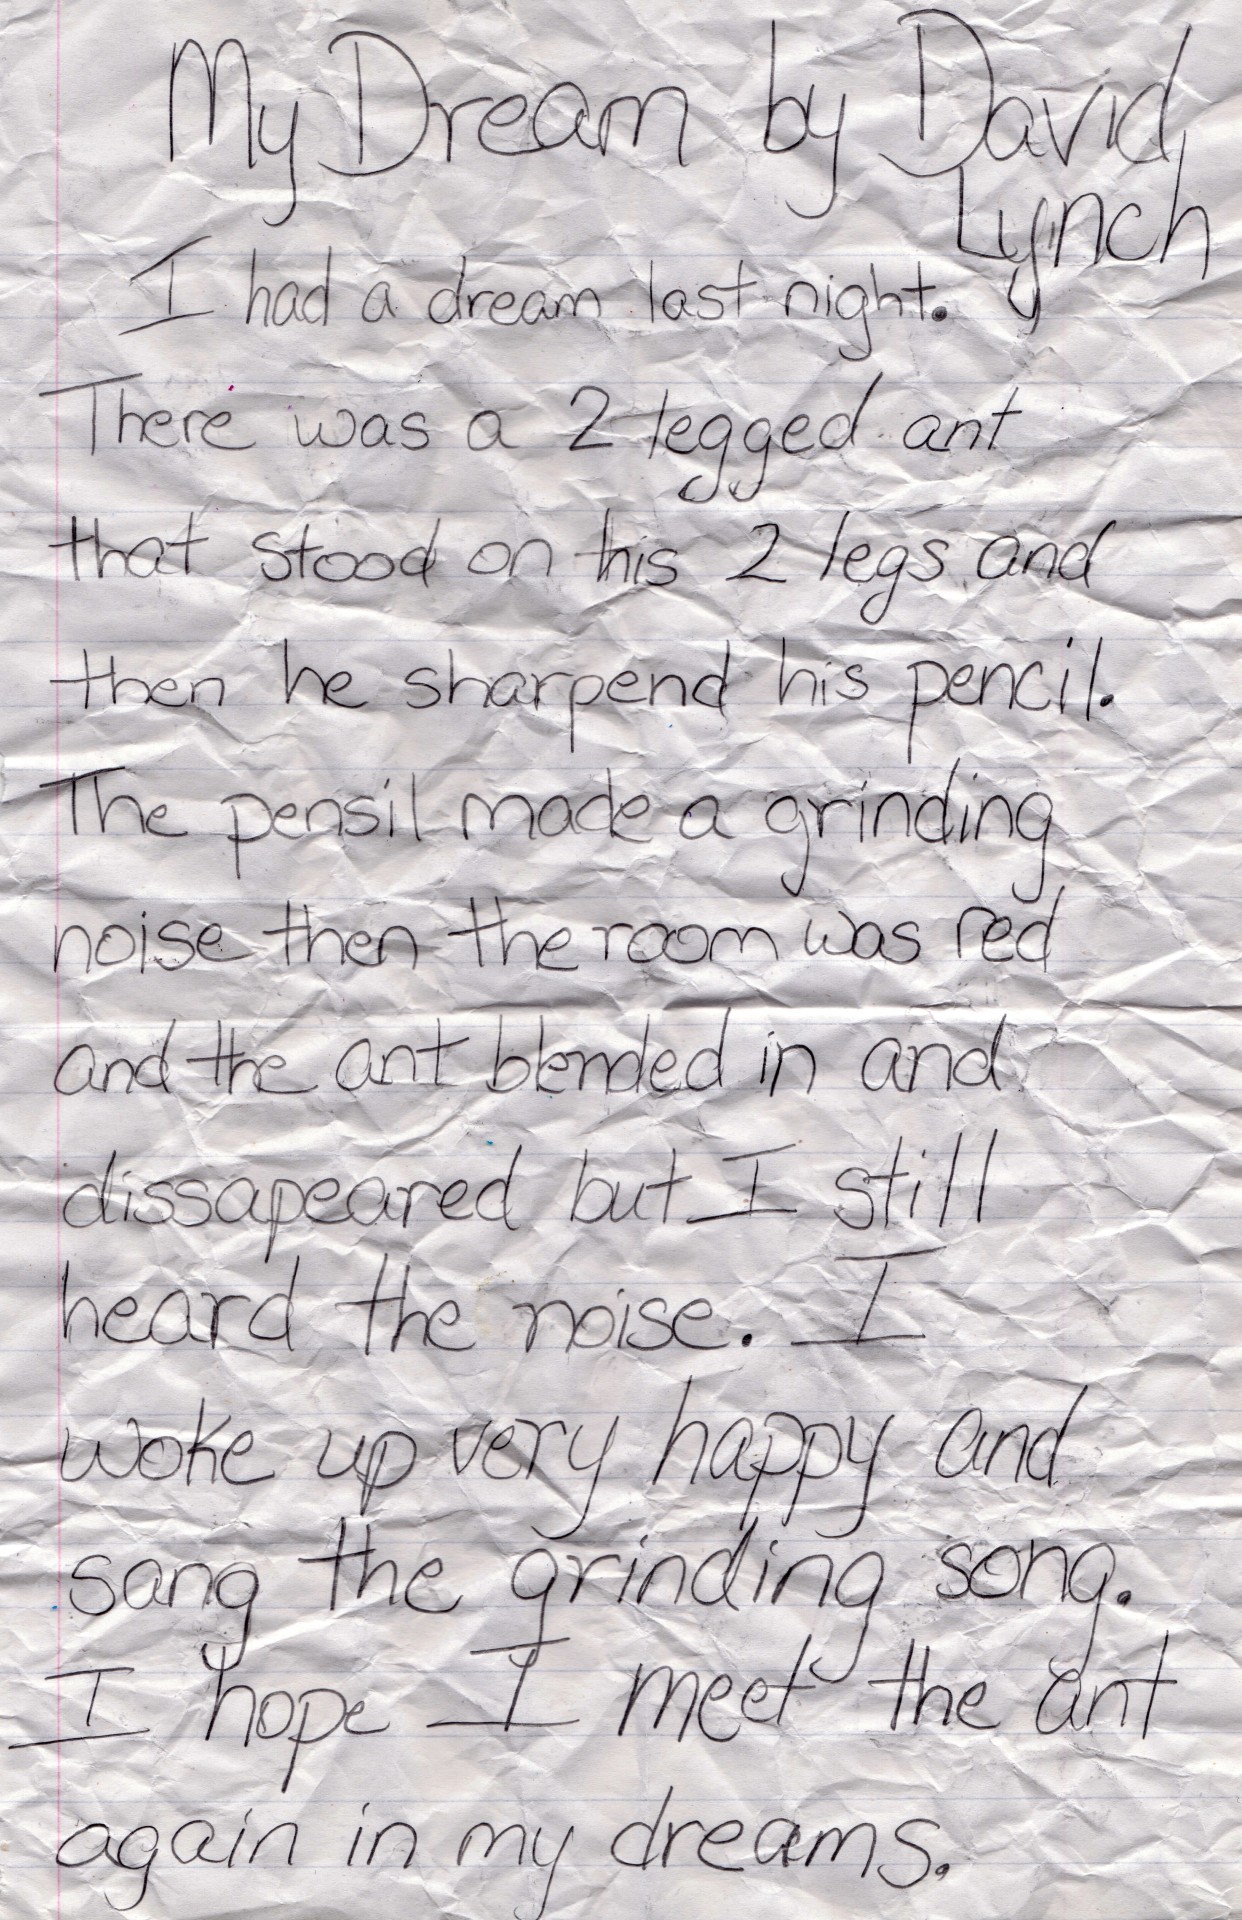 My Dream by David
Lynch
I had a dream last night.
There was a 2 legged ant
that stood on his 2 legs and
then he sharpend his pencil.
The pensil made a grinding
noise then the room was red
and the ant blended in and
dissapeared but I still
heard the noise. I
woke up very happy and
sang the grinding song.
I hope I meet the ant
again in my dreams.